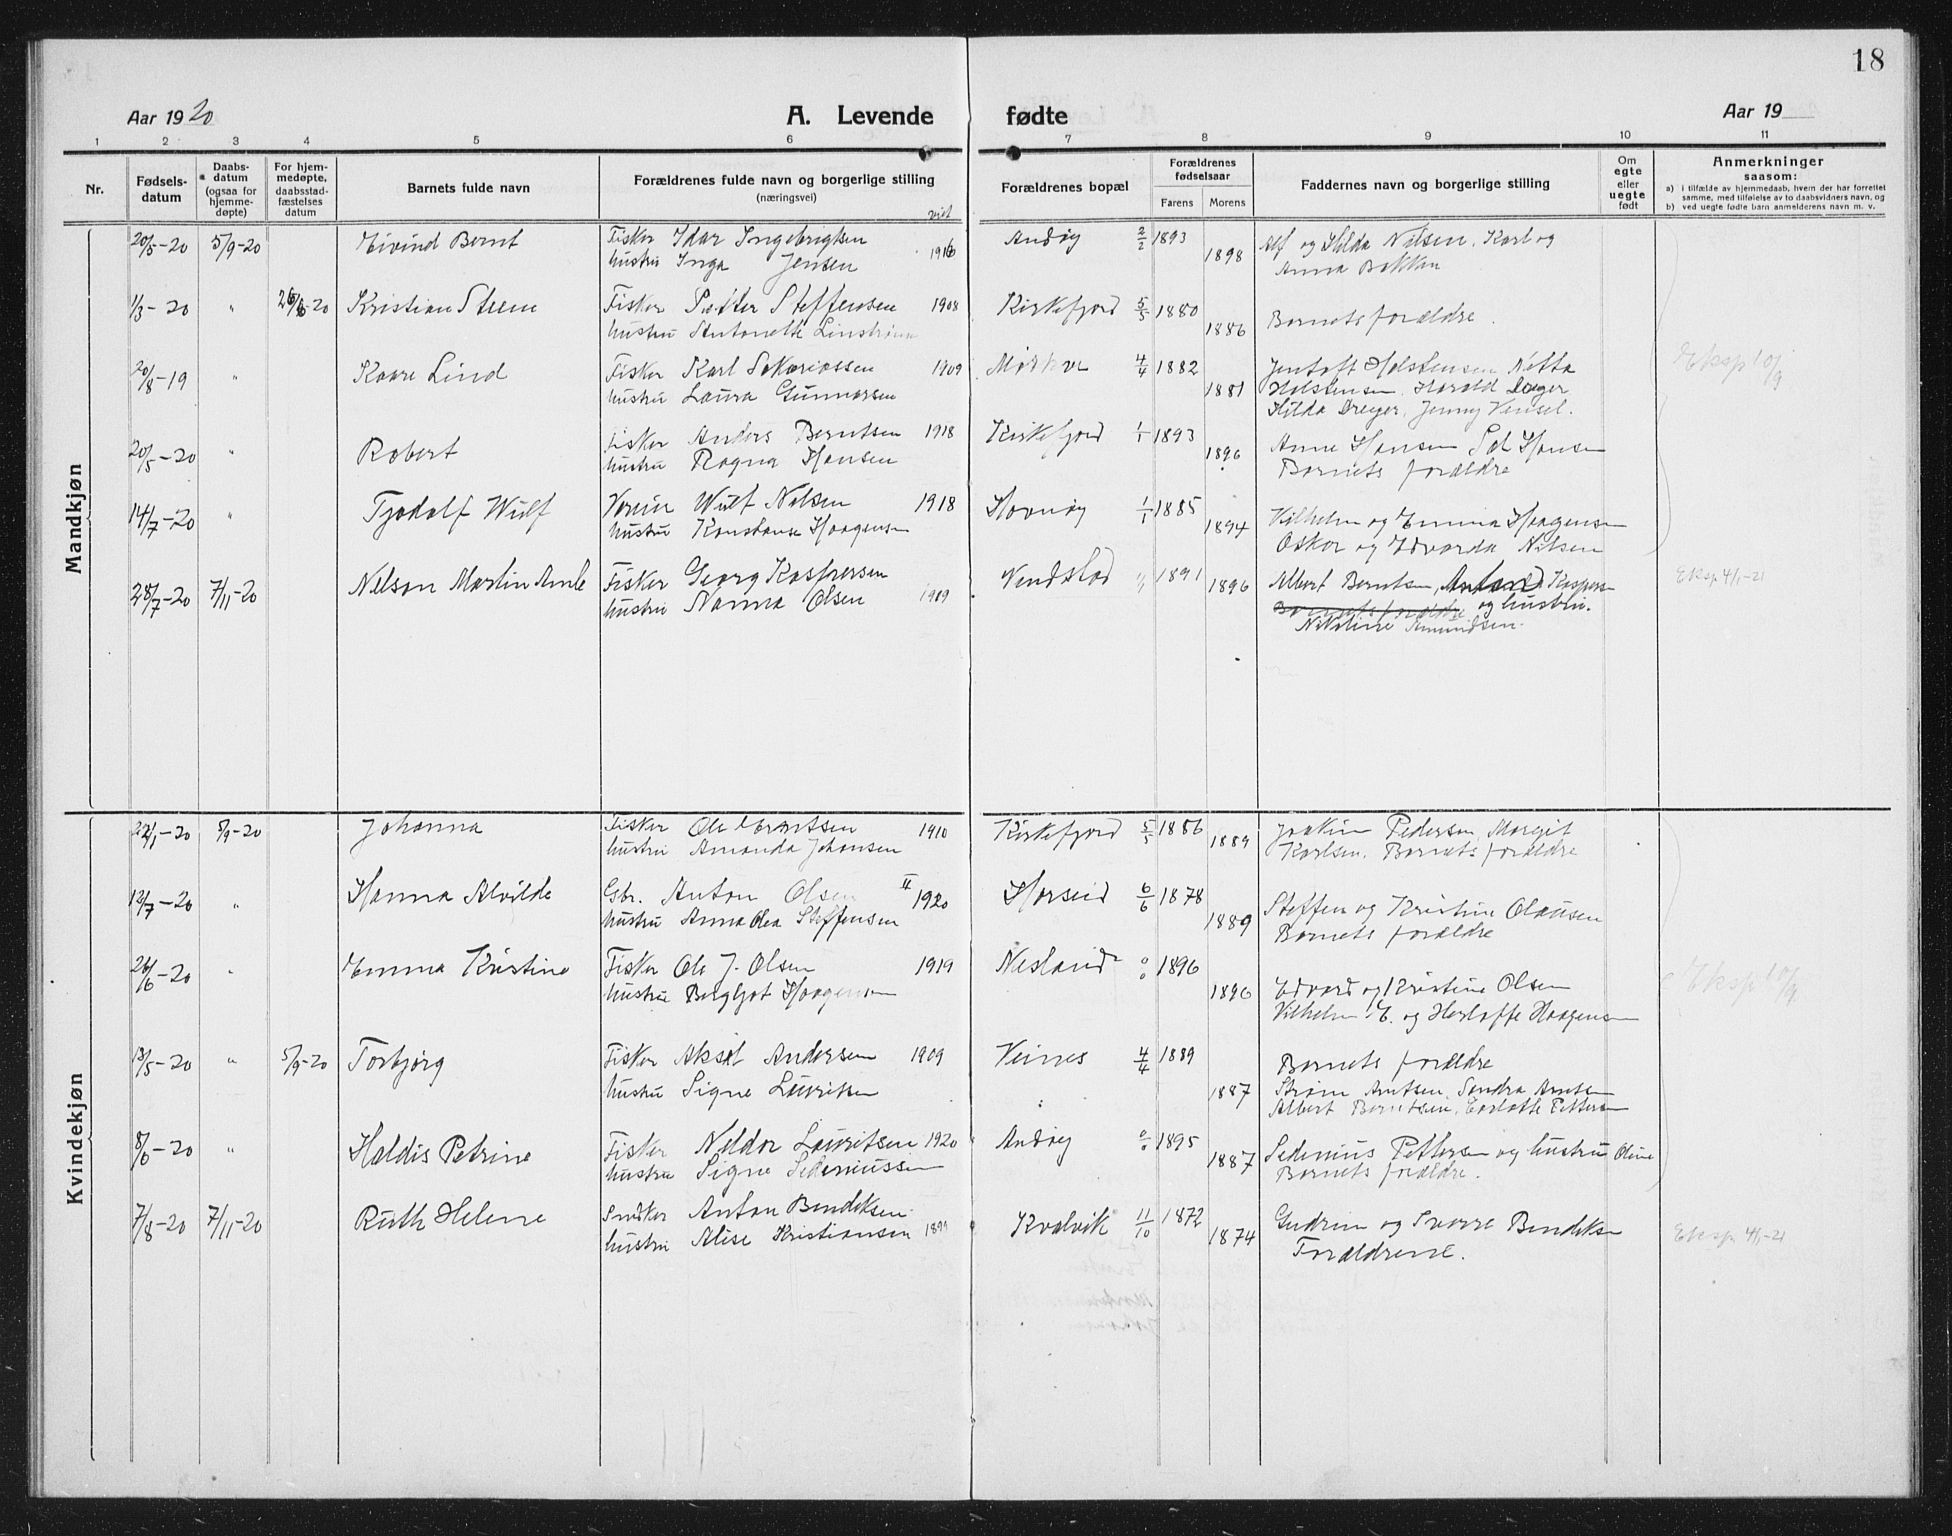 18
Aar 1920 A. Levende fødte Aar 19
1 2 3 4 5 6 7 8 9 10 11
Nr.
Fødsels-
datum
Daabs-
datum
(ogsaa for
hjemme-
døpte)
For hjem-
medøpte,
daabsstad-
fæstelses
datum
Barnets fulde navn
Forældrenes fulde navn og borgerlige stilling
(næringsvei)
viet
Forældrenes bopæl
Forældrenes
fødselsaar
Farens Morens
Faddernes navn og borgerlige stilling
Om
egte
eller
uegte
født
Anmerkninger
saasom:
a) i tilfælde av hjemmedaab, hvem der har forrettet
samme, med tilføielse av to daabsvidners navn, og
b) ved uegte fødte barn anmelderens navn m. v.
Mandkjøn
20/5-20 5/9-20 Eivind Bernt Fisker Idar Ingebrigtsen 1916 Andøy 2/2 1893 Alf og Hilda Nilsen, Karl og
hustru Inga Jensen 1898 Anna Bakken
1/3-20 " -20 Kristian Steene Fisker Petter Steffensen 1908 Kirkefjord 5/5 1880 Barnets forældre.
hustru Antonette Linstrøm 1886
20/8-19 " Kaare Lind Fisker Karl Sakariassen 1909 4/4 1882 Jentoft Holstensen, Netta
hustru Laura Gunnarsen 1881 Holstensen, Harald
Hilda Dreyer, Jenny
Eksp 10/9
20/5-20 " Robert Fisker Anders Berntsen 1918 Kirkefjord 1/1 1893 Anne Hansen Sol Hansen
hustru Ragna Hansen 1896 Barnets forældre
14/7-20 " Tjodolf Wulf Wulf Nilsen 1918 Havnøy 1/1 1885 Vilhelm og Emma Haagensen
hustru Konstanse Haagensen 1894 Oskar og Edvarda Nilsen
28/7-20 7/11-20 Nelson Martin Fisker Georg Kaspersen Vendstad 1891 Albert Berntsen, Anton Kaspersen
hustru Nanna Olsen 1919 1896 Barnets forældre og hustru.
Nikoline Amundsen.
Eksp. 4/1-21
Kvindekjøn
22/1-20 5/9-20 Johanna Fisker Ole Berntsen 1910 Kirkefjord 5/5 1886 Joakim Pedersen, Margit
hustru Amanda Johansen 1889 Karlsen. Barnets forældre
12/7-20 " Hanna Alvilde Gbr. Anton Olsen II 1920 Horseid 6/6 1878 Steffen og Kristine Olaussen
hustru Anna Olea Steffensen 1889 Barnets forældre
26/6-20 " Emma Kristine Fisker Ole J. Olsen 1919 Nesland 0/0 1896
hustru Bergljot Haagensen 1896 Edvard og Kristine Olsen
Vilhelm E. og Herloffe Haagensen
Eksp 10/9
13/5-20 " 5/9-20 Torbjørg Fisker Aksel Andersen 1909 Veines 4/4 1889 Barnets forældre
hustru Signe Lauritsen 1887 Strøm Arntsen, Sandra Arntsen
Albert Berntsen, Carlotte Pettersen
8/6-20 " Haldis Petrine Fisker Neldor Lauritsen 1920 Andøy 0/0 1895 Sedenius Pettersen og hustru Oline
hustru Signe Sedeniussen 1887 Barnets forældre.
7/8-20 7/11-20 Ruth Helene Anton Bendiksen Kvalvik 11/10 1872 Gudrun og Sverre Bendiksen
hustru Alise Kristiansen 1899 1874 Forældrene.
Eksp. 4/1-21